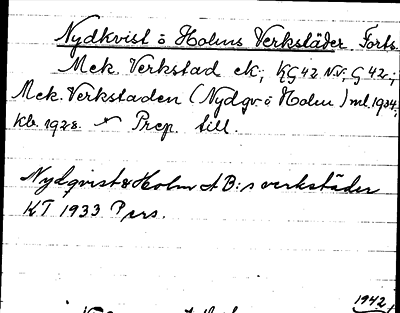 Nydkvist ö Holms Verkstäder. Forts.
Mek. Verkstad ek; KG42 N.V.; G 42.;
Mek. Verkstaden (Nydqv. ö Holm) ml. 1934;
Kb. 1928. Prep. till.
Nydqvist & Holm AB:s verkstäder
KT 1933 Pers.
1942